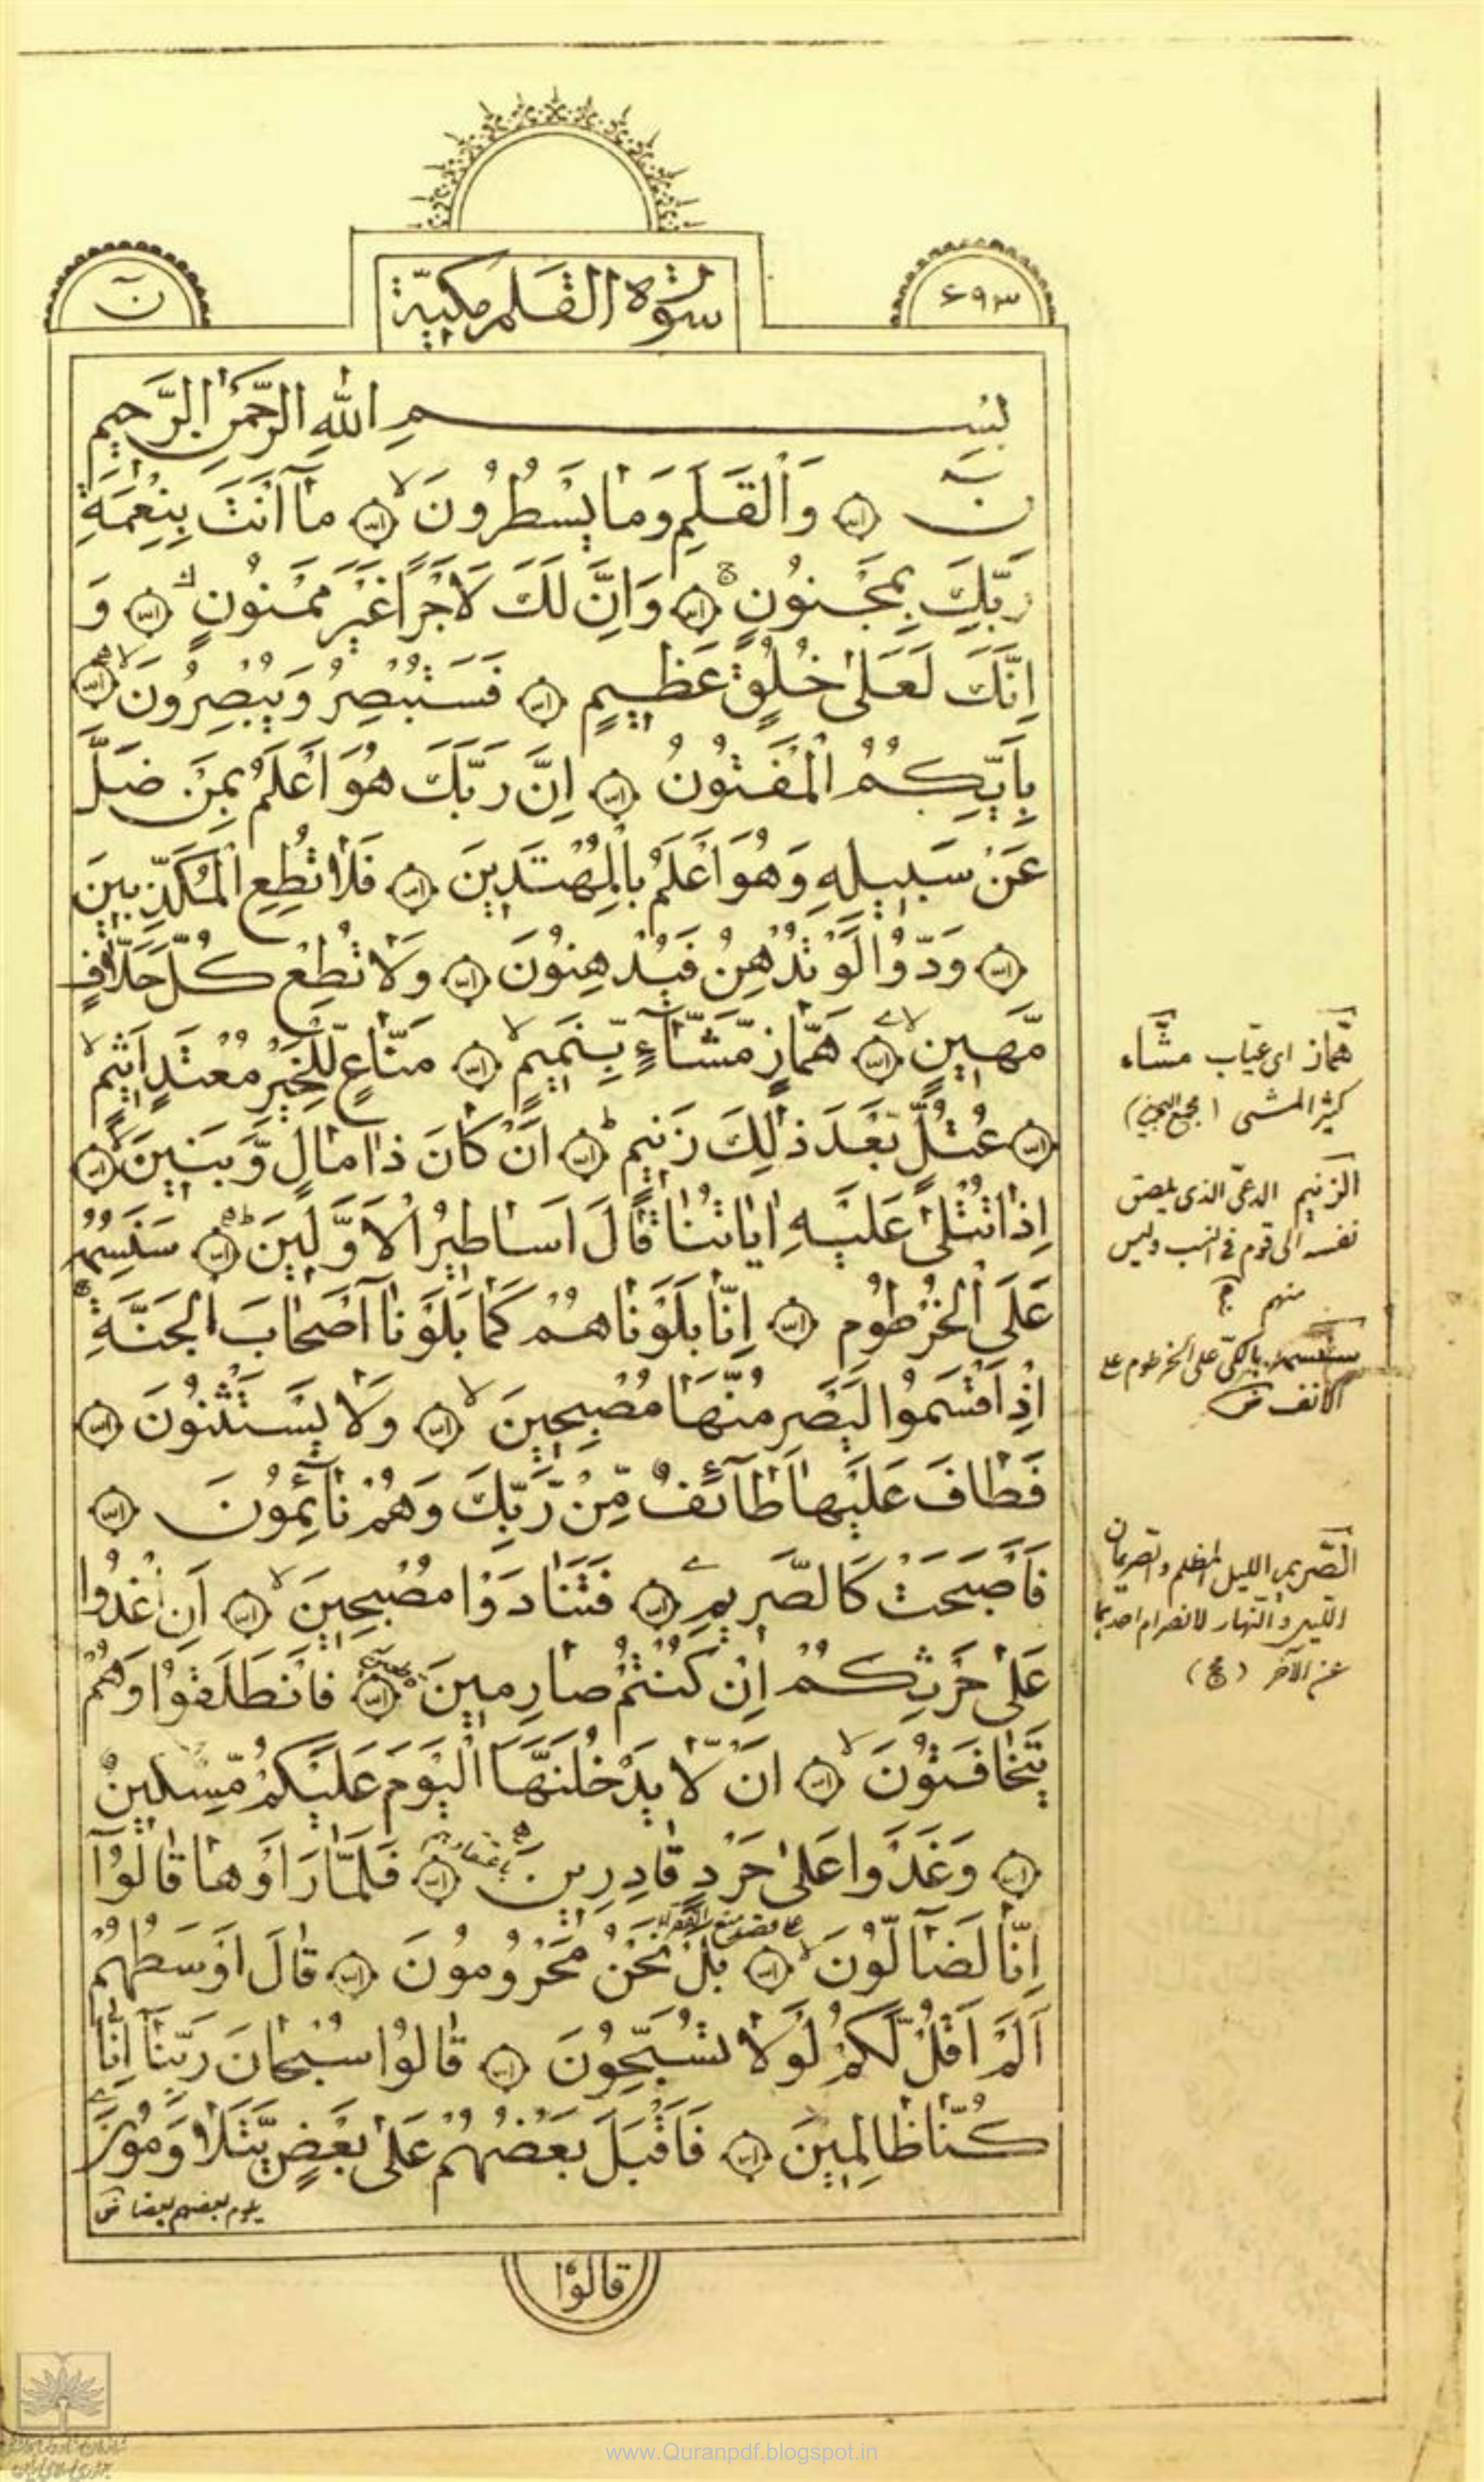 ۶۹۳
سورة القلم مكية
ن
بِسْمِ اللهِ الرَّحْمٰنِ الرَّحِيمِ
نۤ وَالْقَلَمِ وَمٰا يَسْطُرُونَ مٰا اَنْتَ بِنِعْمَةِ
رَبِّكَ بِمَجْنُونٍ وَاِنَّ لَكَ لَاَجْرًا غَيْرَ مَمْنُونٍ وَ
اِنَّكَ لَعَلىٰ خُلُقٍ عَظِيمٍ فَسَتُبْصِرُ وَيُبْصِرُونَ
بِاَيِّكُمُ الْمَفْتُونُ اِنَّ رَبَّكَ هُوَ اَعْلَمُ بِمَنْ ضَلَّ
عَنْ سَبِيلِهِ وَهُوَ اَعْلَمُ بِالْمُهْتَدِينَ فَلاٰ تُطِعِ الْمُكَذِّبِينَ
وَدُّوا لَوْ تُدْهِنُ فَيُدْهِنُونَ وَلاٰ تُطِعْ كُلَّ حَلّاٰفٍ
مَّهِينٍ هَمّٰازٍ مَّشّٰآءٍ بِنَمِيمٍ مَنّٰاعٍ لِلْخَيْرِ مُعْتَدٍ اَثِيمٍ
عُتُلٍّ بَعْدَ ذٰلِكَ زَنِيمٍ اَنْ كٰانَ ذٰا مٰالٍ وَّبَنِينَ
اِذٰا تُتْلىٰ عَلَيْهِ اٰيٰاتُنٰا قٰالَ اَسٰاطِيرُ الْاَوَّلِينَ سَنَسِمُهُ
عَلَى الْخُرْطُومِ اِنّٰا بَلَوْنٰاهُمْ كَمٰا بَلَوْنٰا اَصْحٰابَ الْجَنَّةِ
اِذْ اَقْسَمُوا لَيَصْرِمُنَّهٰا مُصْبِحِينَ وَلاٰ يَسْتَثْنُونَ
فَطٰافَ عَلَيْهٰا طٰآئِفٌ مِّنْ رَّبِّكَ وَهُمْ نٰآئِمُونَ
فَاَصْبَحَتْ كَالصَّرِيمِ فَتَنٰادَوْا مُصْبِحِينَ اَنِ اغْدُوا
عَلىٰ حَرْثِكُمْ اِنْ كُنْتُمْ صٰارِمِينَ فَانْطَلَقُوْا وَهُمْ
يَتَخٰافَتُونَ اَنْ لّاٰ يَدْخُلَنَّهَا الْيَوْمَ عَلَيْكُمْ مِّسْكِينٌ
وَغَدَوْا عَلىٰ حَرْدٍ قٰادِرِينَ فَلَمّٰا رَاَوْهٰا قٰالُوْا
اِنّٰا لَضٰآلُّونَ بَلْ نَحْنُ مَحْرُومُونَ قٰالَ اَوْسَطُهُمْ
اَلَمْ اَقُلْ لَّكُمْ لَوْلاٰ تُسَبِّحُونَ قٰالُوْا سُبْحٰانَ رَبِّنٰا اِنّٰا
كُنّٰا ظٰالِمِينَ فَاَقْبَلَ بَعْضُهُمْ عَلىٰ بَعْضٍ يَّتَلاٰوَمُوْنَ
يلوم بعضهم بعضا ض
قالوا
همّاز اى عيّاب مشّاء
كثير المشى (مجمع البحرين)
الزنيم الدعىّ الذى يلصق
نفسه الى قوم فى النسب وليس
منهم
سنسمه بالكىّ على الخرطوم
الانف ض
الصّريم الليل المظلم والصريمان
الليل والنهار لانصرام احدهما
عن الآخر
www.Quranpdf.blogspot.in